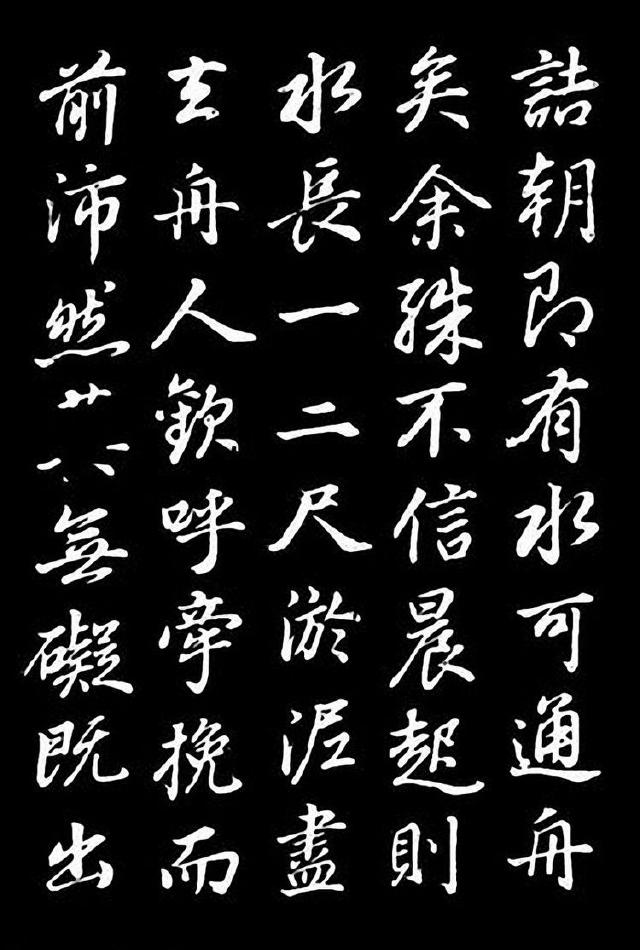 詰朝即有水可通舟
矣余殊不信晨起則
水長一二尺淤泥盡
去舟人歡呼牽挽而
前沛然廿一八無礙既出